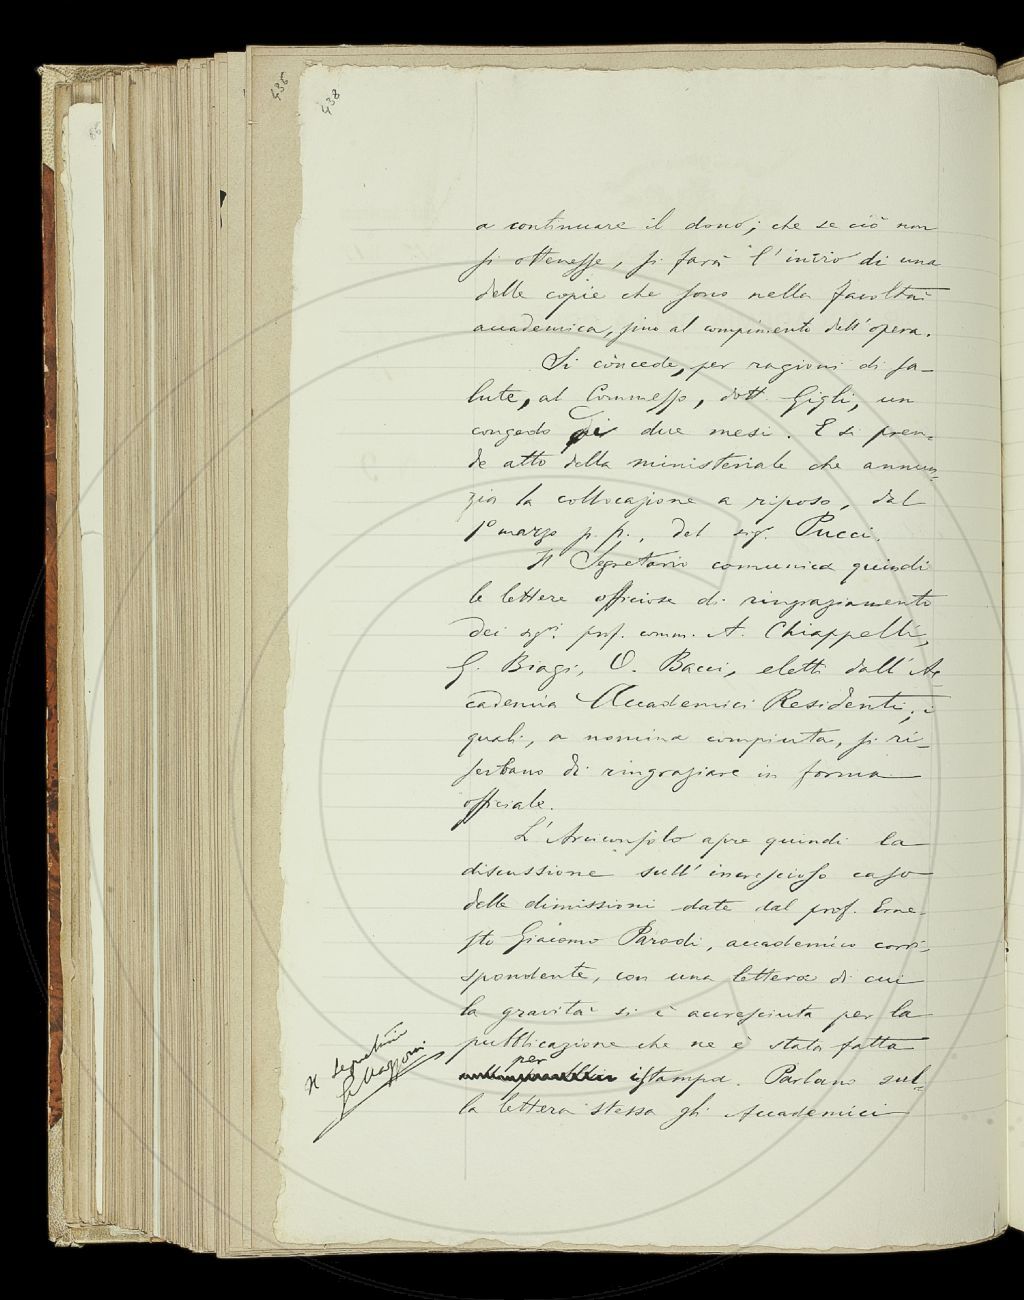 436
438
a continuare il dono; che se ciò non
si ottenesse, si farà l'invio di una
delle copie che sono nella facoltà
accademica, sino al compimento dell'opera.
Si concede, per ragioni di sa-
lute, al Commesso, dott. Gigli, un
congedo di due mesi. E si pren-
de atto della ministeriale che annun-
zia la collocazione a riposo, dal
1º marzo p.p., del sig. Pucci.
Il Segretario comunica quindi
le lettere officiose di ringraziamento
dei sigi. prof. comm. A. Chiappelli,
G. Biagi, O. Bacci, eletti dall'Ac-
cademia Accademici Residenti, i
quali, a nomina compiuta, si ri-
serbano di ringraziare in forma
officiale.
L'Arciconsolo apre quindi la
discussione sull'increscioso caso
delle dimissioni date dal prof. Erne-
sto Giacomo Parodi, accademico corri-
spondente, con una lettera di cui
la gravità si è accresciuta per la
pubblicazione che ne è stata fatta
per istampa. Parlano sul-
la lettera stessa gli Accademici
Il Segretario
G. Mazzoni